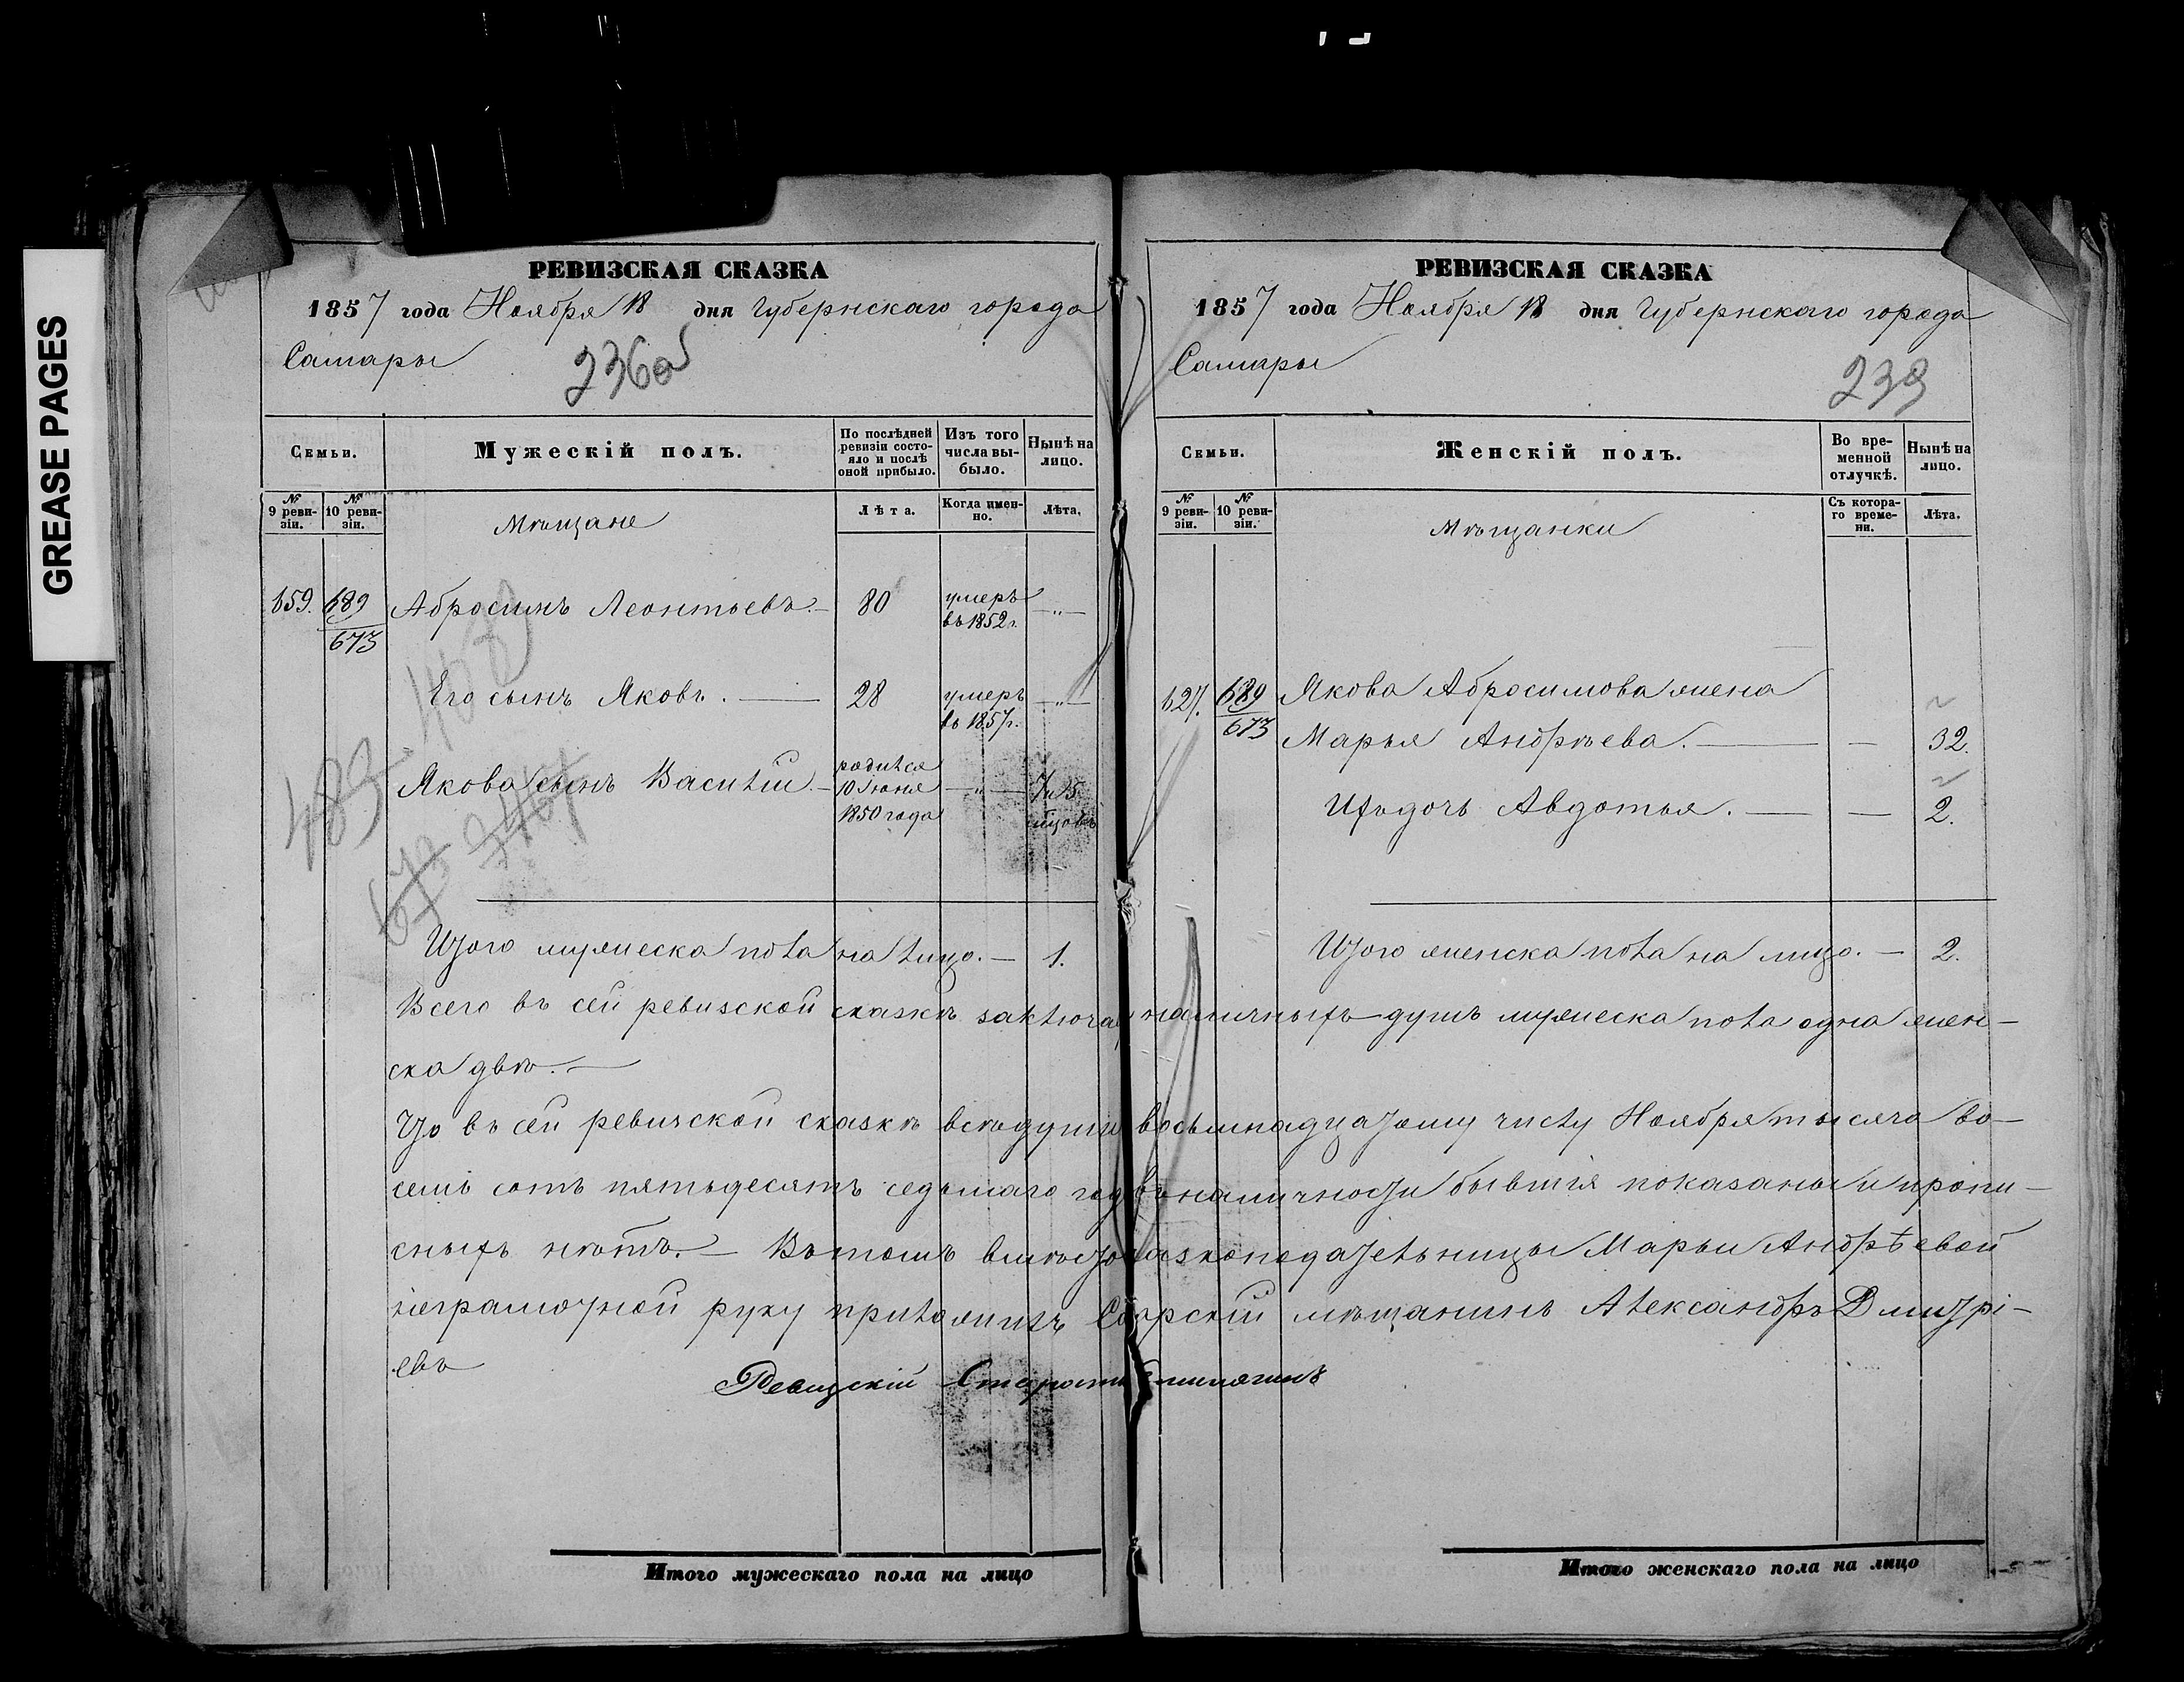 GREASE PAGES
РЕВИЗСКАЯ СКАЗКА
1857 года Ноября 18 дня Губернскаго города
Самары
236об
Семьи.
Мужескій полъ.
По послѣдней ревизіи состояло и послѣ оной прибыло.
Изъ того числа выбыло.
Нынѣ на лицо.
№ 9 ревизіи.
№ 10 ревизіи.
Мѣщане
Лѣта.
Когда именно.
Лѣта.
659. 689/673 Абросимъ Леонтьевъ. — 80 умеръ въ 1852 г. — „ —
Его сынъ Яковъ. — 28 умеръ въ 1857 г. — „ —
Якова сынъ Василій. — родился 10 Іюня 1850 года — „ — 7 и 5 мцовъ
483
673
Итого мужеска пола на лицо. — 1.
РЕВИЗСКАЯ СКАЗКА
1857 года Ноября 18 дня Губернскаго города
Самары
239
Семьи.
Женскій полъ.
Во временной отлучкѣ.
Нынѣ на лицо.
№ 9 ревизіи.
№ 10 ревизіи.
Мѣщанки
Съ котораго времени.
Лѣта.
627. 689/673 Якова Абросимова жена
Марья Андрѣева. — — 32.
Ихъ дочь Авдотья. — — 2.
Итого женска пола на лицо. — 2.
Всего въ сей ревизской сказкѣ заключая наличныхъ душъ мужеска пола одна жен-
ска двѣ. —
Что въ сей ревизской сказкѣ всѣ души восьмнадцатому числу Ноября тысяча во-
семь сотъ пятьдесятъ седьмаго год въ наличности бывшія показаны и пропи-
сныхъ нѣтъ. — Въ томъ вмѣсто сказкоподательницы Марьи Андрѣевой
неграмотной руку приложилъ мѣщанинъ Александръ Дмитрі-
евъ
Ревизскій Староста
Итого мужескаго пола на лицо
Итого женскаго пола на лицо